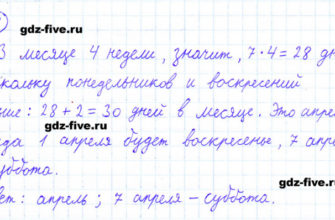 gdz-five.ru
gdz-five.ru
З месяце 4 недели, значит, 7·4=28 дн
кольку понедельников и воскресений
ние: 28+2=30 дней в месяце. Это апрел
gdz-five.ru
да 1 апреля будет воскресенье, 7 апре
уббота.
gdz-five.ru
ет: апрель; 7 апреля - суббота.